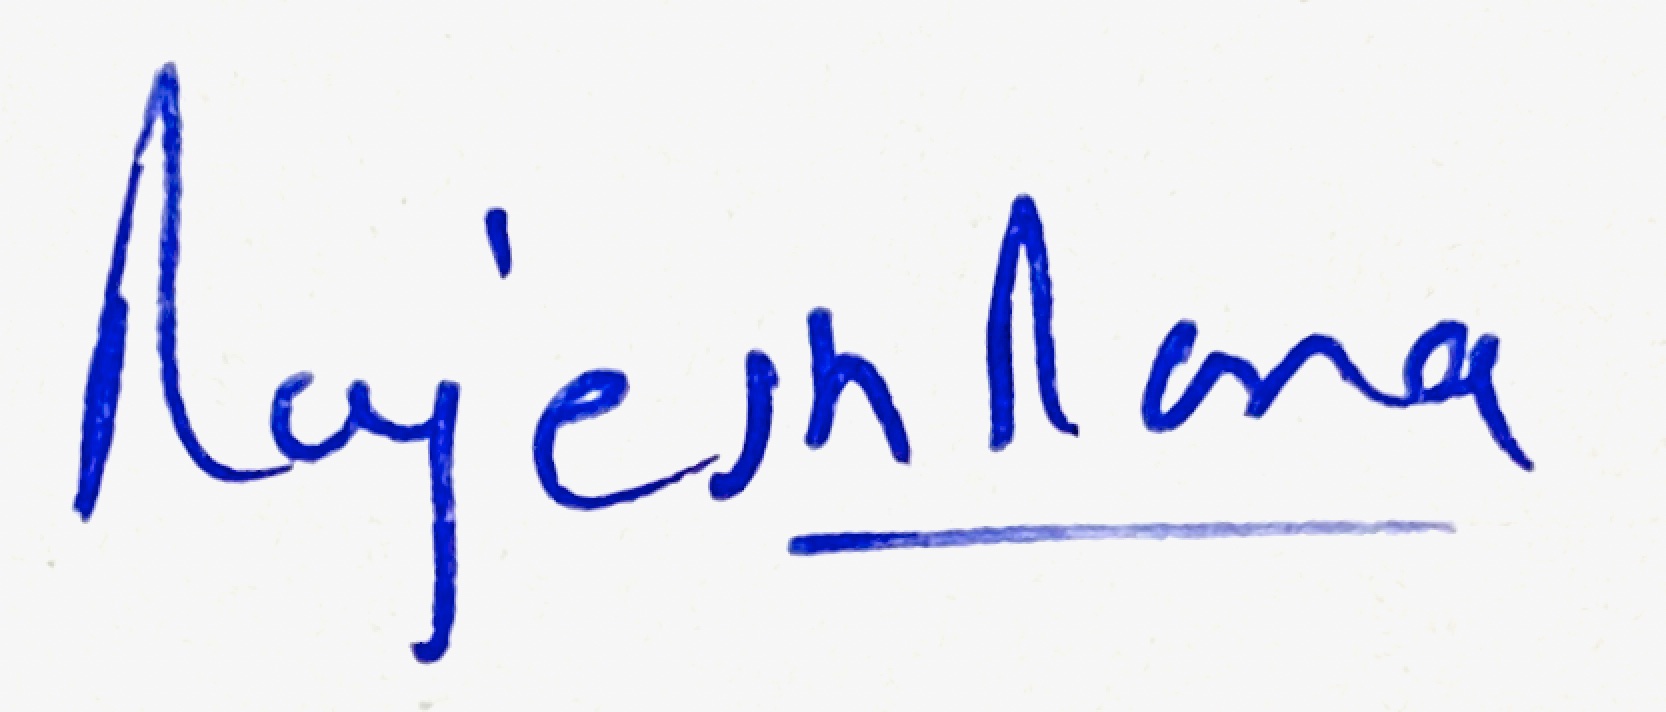 Rajesh Rana